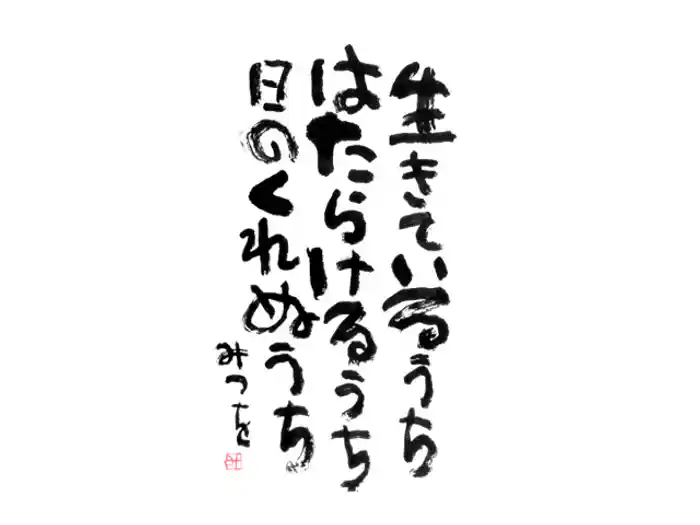 生きているうち
はたらけるうち
日のくれぬうち
みつを